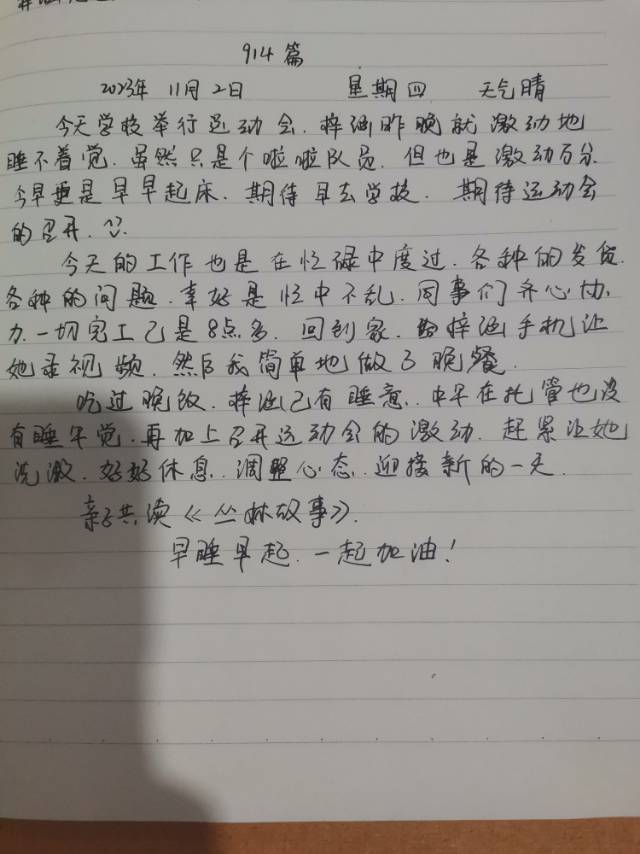 914篇
2023年 11月2日 星期四 天气晴
今天学校举行运动会.梓涵昨晚就激动地
睡不着觉.虽然只是个啦啦队员.但也是激动万分.
今早更是早早起床.期待早去学校.期待运动会
的召开.
今天的工作也是在忙碌中度过.各种的发货.
各种的问题.幸好是忙中不乱.同事们齐心协
力.一切完工已是8点多.回到家.给梓涵手机让
她录视频.然后我简单地做了晚餐.
吃过晚饭.梓涵已有睡意.中午在托管也没
有睡午觉.再加上召开运动会的激动.赶紧让她
洗漱.好好休息.调整心态.迎接新的一天.
亲子共读《丛林故事》.
早睡早起.一起加油!